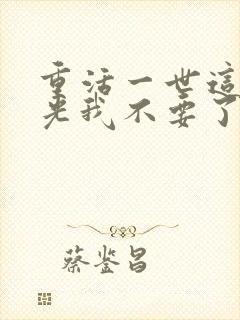 重活一世這
光我不要了
蔡鉴昌